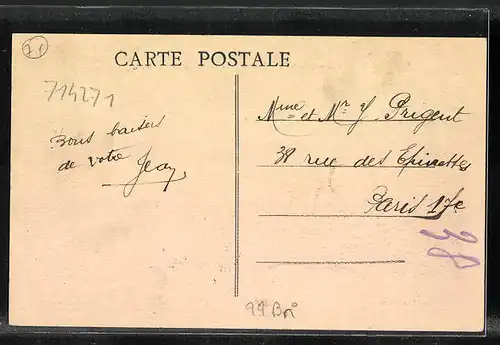 71
CARTE POSTALE
714271
Bons baisers
de votre Jean
Mme et Mr J. Prigent
38 rue des Epinettes
Paris 17e
38